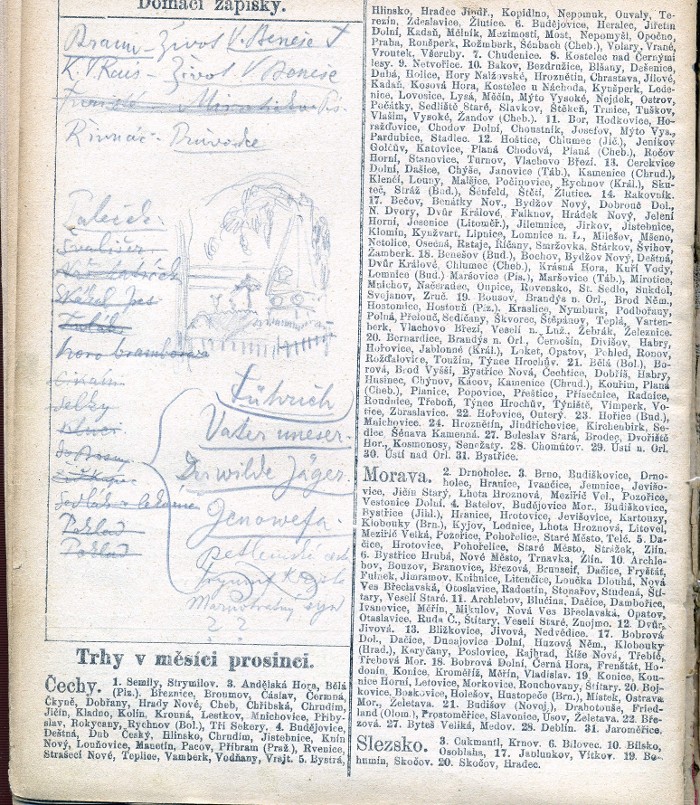 Domácí zápisky.
Braun - Život V. Beneše
Život V. Beneše
Průvodce
Führich
Vater unser.
Der wilde Jäger.
Genovefa.
Marnotratný syn
? ?
Trhy v měsíci prosinci.
Čechy. 1. Semily, Strymilov. 3. Andělská Hora, Bělá
(Plz.), Březnice, Broumov, Čáslav, Čermná,
Čkyně, Dobřany, Hrady Nové, Cheb, Chřibská, Chrudim,
Jičín, Kladno, Kolín, Krouná, Lestkov, Mnichovice, Přiby-
slav, Rokycany, Rychnov (Bol.), Tři Sekery. 4. Budějovice,
Deštná, Dub Český, Hlinsko, Chrudim, Jistebnice, Knín
Nový, Louňovice, Manetín, Pacov, Příbram (Praž.), Rvenice,
Strašecí Nové, Teplice, Vamberk, Vodňany, Vrajt. 5. Bystrá,
Hlinsko, Hradec Jindř., Kopidlno, Nepomuk, Ouvaly, Te-
rezín, Zdeslavice, Žlutice. 6. Budějovice, Heralec, Jiřetín
Dolní, Kadaň, Mělník, Mezimostí, Most, Nepomyšl, Opočno,
Praha, Ronšperk, Rožmberk, Šénbach (Cheb.), Volary, Vrané,
Vroutek, Všeruby. 7. Chudenice. 8. Kostelec nad Černými
lesy. 9. Netvořice. 10. Bakov, Bezdružice, Blšany, Dešenice,
Dubá, Holice, Hory Nalžovské, Hroznětín, Chrastava, Jílové,
Kadaň, Kosová Hora, Kostelec u Náchoda, Kynšperk, Lede-
nice, Lovosice, Lysá, Měčín, Mýto Vysoké, Nejdek, Ostrov,
Počátky, Sedliště Staré, Slavkov, Štěkeň, Trnice, Tuškov,
Vlašim, Vysoké, Žandov (Cheb.). 11. Bor, Hodkovice, Ho-
ražďovice, Chodov Dolní, Choustník, Josefov, Mýto Vys.,
Pardubice, Stadlec. 12. Hoštice, Chlumec (Jič.), Jeníkov
Golčův, Katovice, Planá Chodová, Planá (Cheb.), Ročov
Horní, Stanovice, Turnov, Vlachovo Březí. 13. Cerekvice
Dolní, Dašice, Chýše, Janovice (Táb.), Kamenice (Chrud.),
Klenčí, Louny, Malšice, Počinovice, Rychnov (Král.), Sku-
teč, Stráž (Bud.), Šénfeld, Štětí, Žlutice. 14. Rakovník.
17. Bečov, Benátky Nov., Bydžov Nový, Dobrouč Dol.,
N. Dvory, Dvůr Králové, Falknov, Hrádek Nový, Jelení
Horní, Jesenice (Litoměř.), Jilemnice, Jirkov, Jistebnice,
Klomín, Kynžvart, Lipnice, Lomnice n. L., Milešov, Mšeno,
Netolice, Osečná, Rataje, Říčany, Smržovka, Stárkov, Švihov,
Žamberk. 18. Benešov (Bud.), Bochov, Bydžov Nový, Deštná,
Dvůr Králové, Chlumec (Cheb.), Krásná Hora, Kuří Vody,
Lomnice (Bud.) Maršovice (Pla.), Maršovice (Táb.), Mirotice,
Mnichov, Načeradec, Onpice, Rovensko, St. Sedlo, Sukdol,
Svojanov, Zruč. 19. Bousov, Brandýs n. Orl., Brod Něm.,
Hostomice, Hostouň (Plz.), Kraslice, Nymburk, Podbořany,
Polná, Přelouč, Sedlčany, Skvorec, Štěpánov, Teplá, Varten-
berk, Vlachovo Březí, Veselí n. Lnž., Žebrák, Železnice.
20. Bernardice, Brandýs n. Orl., Černošín, Divišov, Habry,
Hořovice, Jablonné (Král.), Loket, Opatov, Pohled, Ronov,
Rožďalovice, Toužim, Týnec Hrochův. 21. Bělá (Bol.), Bo-
rová, Brod Vyšší, Bystřice Nová, Čechtice, Dobříš, Habry,
Husinec, Chýnov, Kácov, Kamenice (Chrud.), Kouřim, Planá
(Cheb.), Planice, Popovice, Přeštice, Přísečnice, Radnice,
Roudnice, Třeboň, Týnec Hrochův, Týniště, Vimperk, Vo-
tice, Zbraslavice. 22. Hořovice, Outerý. 23. Hořice (Bud.),
Mnichovice. 24. Hroznětín, Jindřichovice, Kirchenbirk, Se-
dlec, Šénava Kamenná. 27. Boleslav Stará, Brodec, Dvořiště
Hor., Kosmonosy, Senežaty. 28. Chomútov. 29. Ústí n. Orl.
30. Ústí nad Orl. 31. Bystřice.
Morava. 2. Drnholec. 3. Brno, Budiškovice, Drno-
holec, Hranice, Ivančice, Jemnice, Jevišo-
vice, Jičín Starý, Lhota Hroznová, Meziříč Vel., Pozořice,
Vestonice Dolní. 4. Batelov, Budějovice Mor., Budiškovice,
Bystřice (Jihl.), Hranice, Hrotovice, Jevišovice, Kartouzy,
Klobouky (Brn.), Kyjov, Lednice, Lhota Hroznová, Litovel,
Meziříč Velká, Pozořice, Pohořelice, Staré Město, Telč. 5. Da-
čice, Hrotovice, Pohořelice, Staré Město, Strážek, Zlín.
6. Bystřice Hrubá, Nové Město, Trnavka, Zlín. 10. Archle-
bov, Bouzov, Branovice, Březová, Brunseif, Dačice, Fryšták,
Fulnek, Jimramov, Knihnice, Litenčice, Loučka Dlouhá, Nová
Ves Břeclavská, Otoslavice, Radostín, Stonařov, Studená, Ští-
tary, Veselí Staré. 11. Archlebov, Blučina, Dačice, Dambořice,
Ivanovice, Měřín, Mikulov, Nová Ves Břeclavská, Opatov,
Otaslavice, Ruda Č., Štítary, Veselí Staré, Znojmo. 12. Dvůr,
Jivová. 13. Blížkovice, Jivová, Nedvědice. 17. Bobrová
Dol., Dačice, Dunajovice Dolní, Huzová Něm., Klobouky
(Hrad.), Koryčany, Poslovice, Rajhrad, Říše Nová, Třebíč,
Třebová Mor. 18. Bobrová Dolní, Černá Hora, Frenštát, Ho-
donín, Konice, Kroměříž, Měřín, Vladislav. 19. Konice, Kou-
nice Horní, Letovice, Morkovice, Rouchovany, Štítary. 20. Boj-
kovice, Boskovice, Holešov, Hustopeče (Brn.), Místek, Ostrava
Mor., Želetava. 21. Budišov (Novoj.), Drahotouše, Fried-
land (Olom.), Prostoměřice, Slavonice, Úsov, Želetava. 22. Bře-
zová. 27. Byteš Veliká, Medov. 28. Deblín. 31. Jaroměřice.
Slezsko. 3. Cukmantl, Krnov. 6. Bílovec. 10. Bílsko,
Osoblaha. 17. Jablunkov, Vítkov. 19. Bo-
humín, Skočov. 20. Skočov, Hradec.